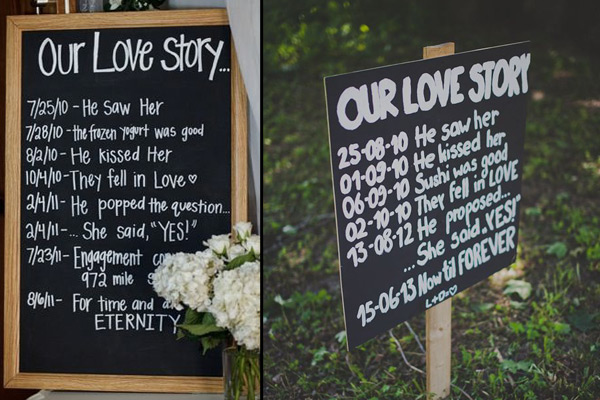 Our Love Story...
7/25/10 - He Saw Her
7/28/10 - the frozen yogurt was good
8/2/10 - He Kissed Her
10/4/10 - They fell in Love ♡
2/4/11 - He popped the question...
2/4/11 - ... She said, "YES!"
7/23/11 - Engagement
972 mile
8/6/11 - For time and
ETERNITY
OUR LOVE STORY
25-08-10 He saw her
01-09-10 He kissed her
06-09-10 Sushi was good
02-10-10 They fell in LOVE
13-08-12 He proposed...
...She said "YES!"
15-06-13 Now til FOREVER
L+D=♡